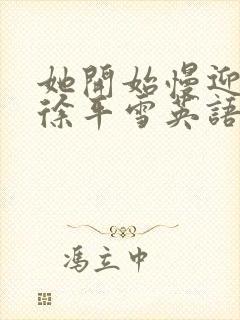 她開始慢迎
徐平雪英語
馮立中